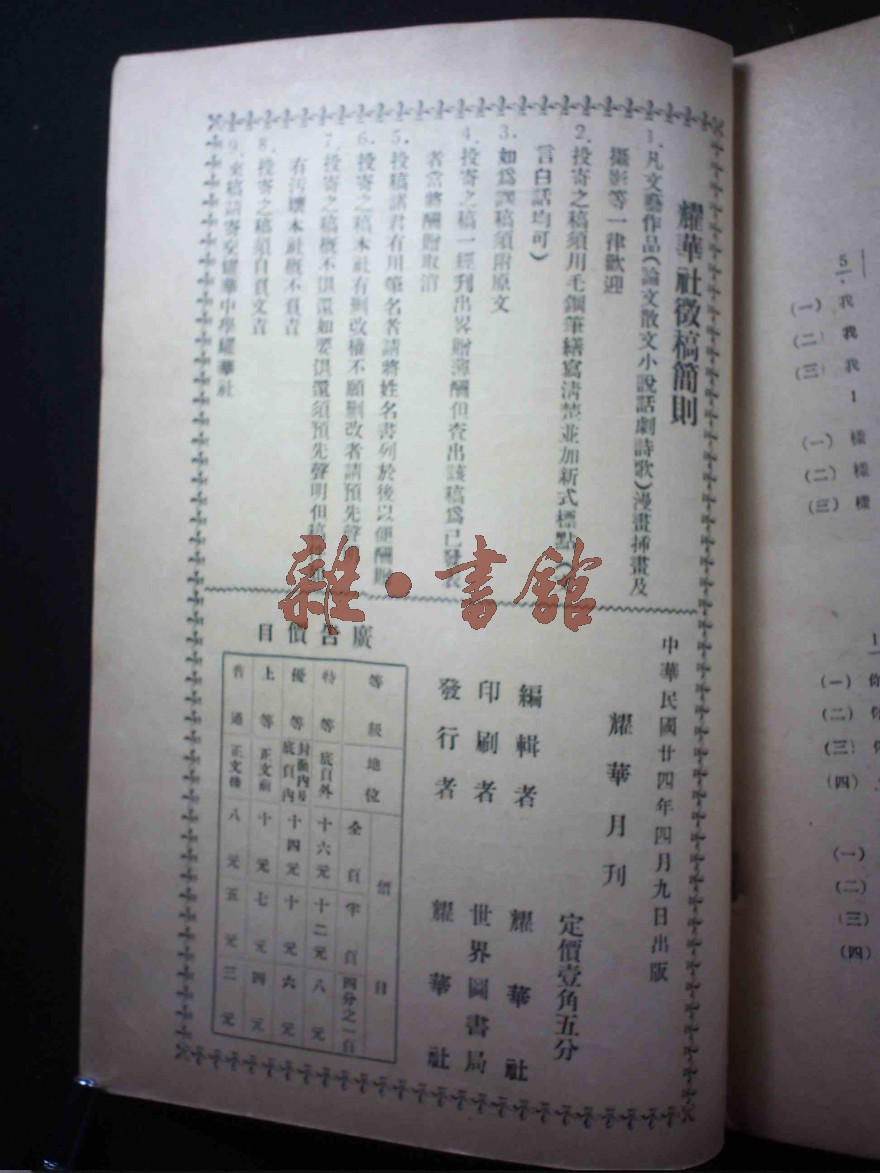 耀華社徵稿簡則
1．凡文藝作品（論文散文小說話劇詩歌）漫畫挿畫及
攝影等一律歡迎
2．投寄之稿須用毛鋼筆繕寫清楚並加新式標點（
言白話均可）
3．如爲譯稿須附原文
4．投寄之稿一經刋出畧贈薄酬但查出該稿爲已發表
者當將酬贈取消
5．投稿諸君有用筆名者請將姓名書列於後以便酬贈
6．投寄之稿本社有删改權不願删改者請預先聲
7．投寄之稿概不俱還如要俱還須預先聲明但稿
有污壞本社概不負責
8．投寄之稿須自負文責
9．來稿請寄交耀華中學耀華社
雜・書館
中華民國廿四年四月九日出版
耀華月刊
定價壹角五分
編輯者 耀華社
印刷者 世界圖書局
發行者 耀華社
廣告價目
等級 地位 價目
全頁 半頁 四分之一頁
特等 底頁外 十六元 十二元 八元
優等 封面內及底頁內 十四元 十元 六元
上等 正文前 十元 七元 四元
普通 正文後 八元 五元 三元
5．我
（一） 我
（二） 我
（三） 我
1
（一） 樣
（二） 樣
（三） 樣
1
（一） 你
（二）
（三）
（四）
（一）
（二）
（三）
（四）